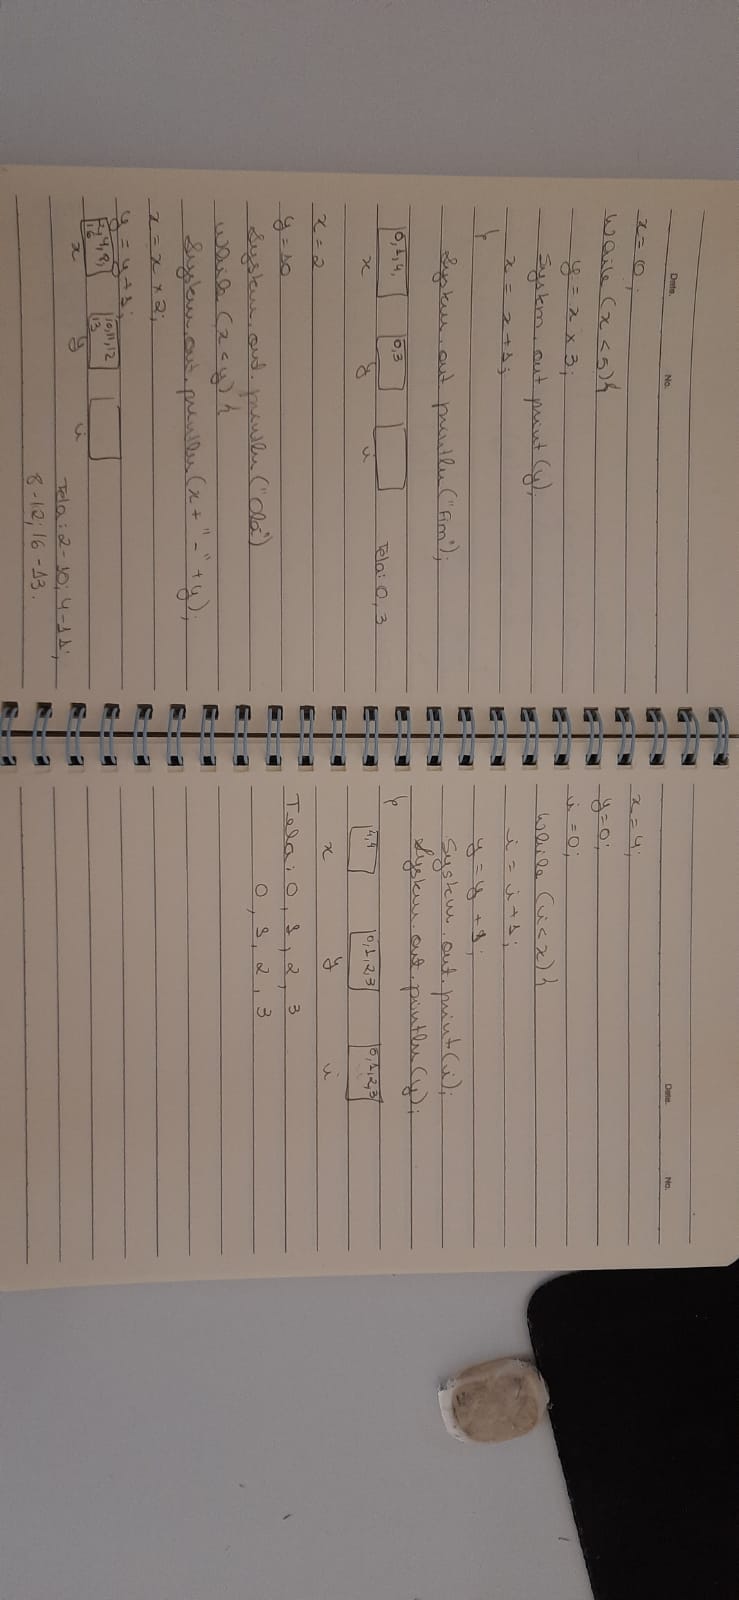 Date. No.
x = 0;
While (x < 5) {
y = x x 3;
System. out. print (y);
x = x + 1;
}
System. out println ("Fim");
0,1,4, 0,3
x y i
Tela: 0, 3
x = 2
y = 10
System. out. println ("Olá")
While (x < y) {
System. out. println (x + "-" + y);
x = x x 2;
y = y + 1;
2,4,8, 10,11,12
16 13
x y i
Tela: 2-10; 4-11;
8-12; 16-13.
Date. No.
x = 4;
y = 0;
i = 0;
While (i < x) {
i = i + 1;
y = y + 1;
System. out. print (i);
System. out. println (y);
}
4,4 0,1,2,3 0,1,2,3
x y i
Tela: 0, 1, 2, 3
0, 1, 2, 3